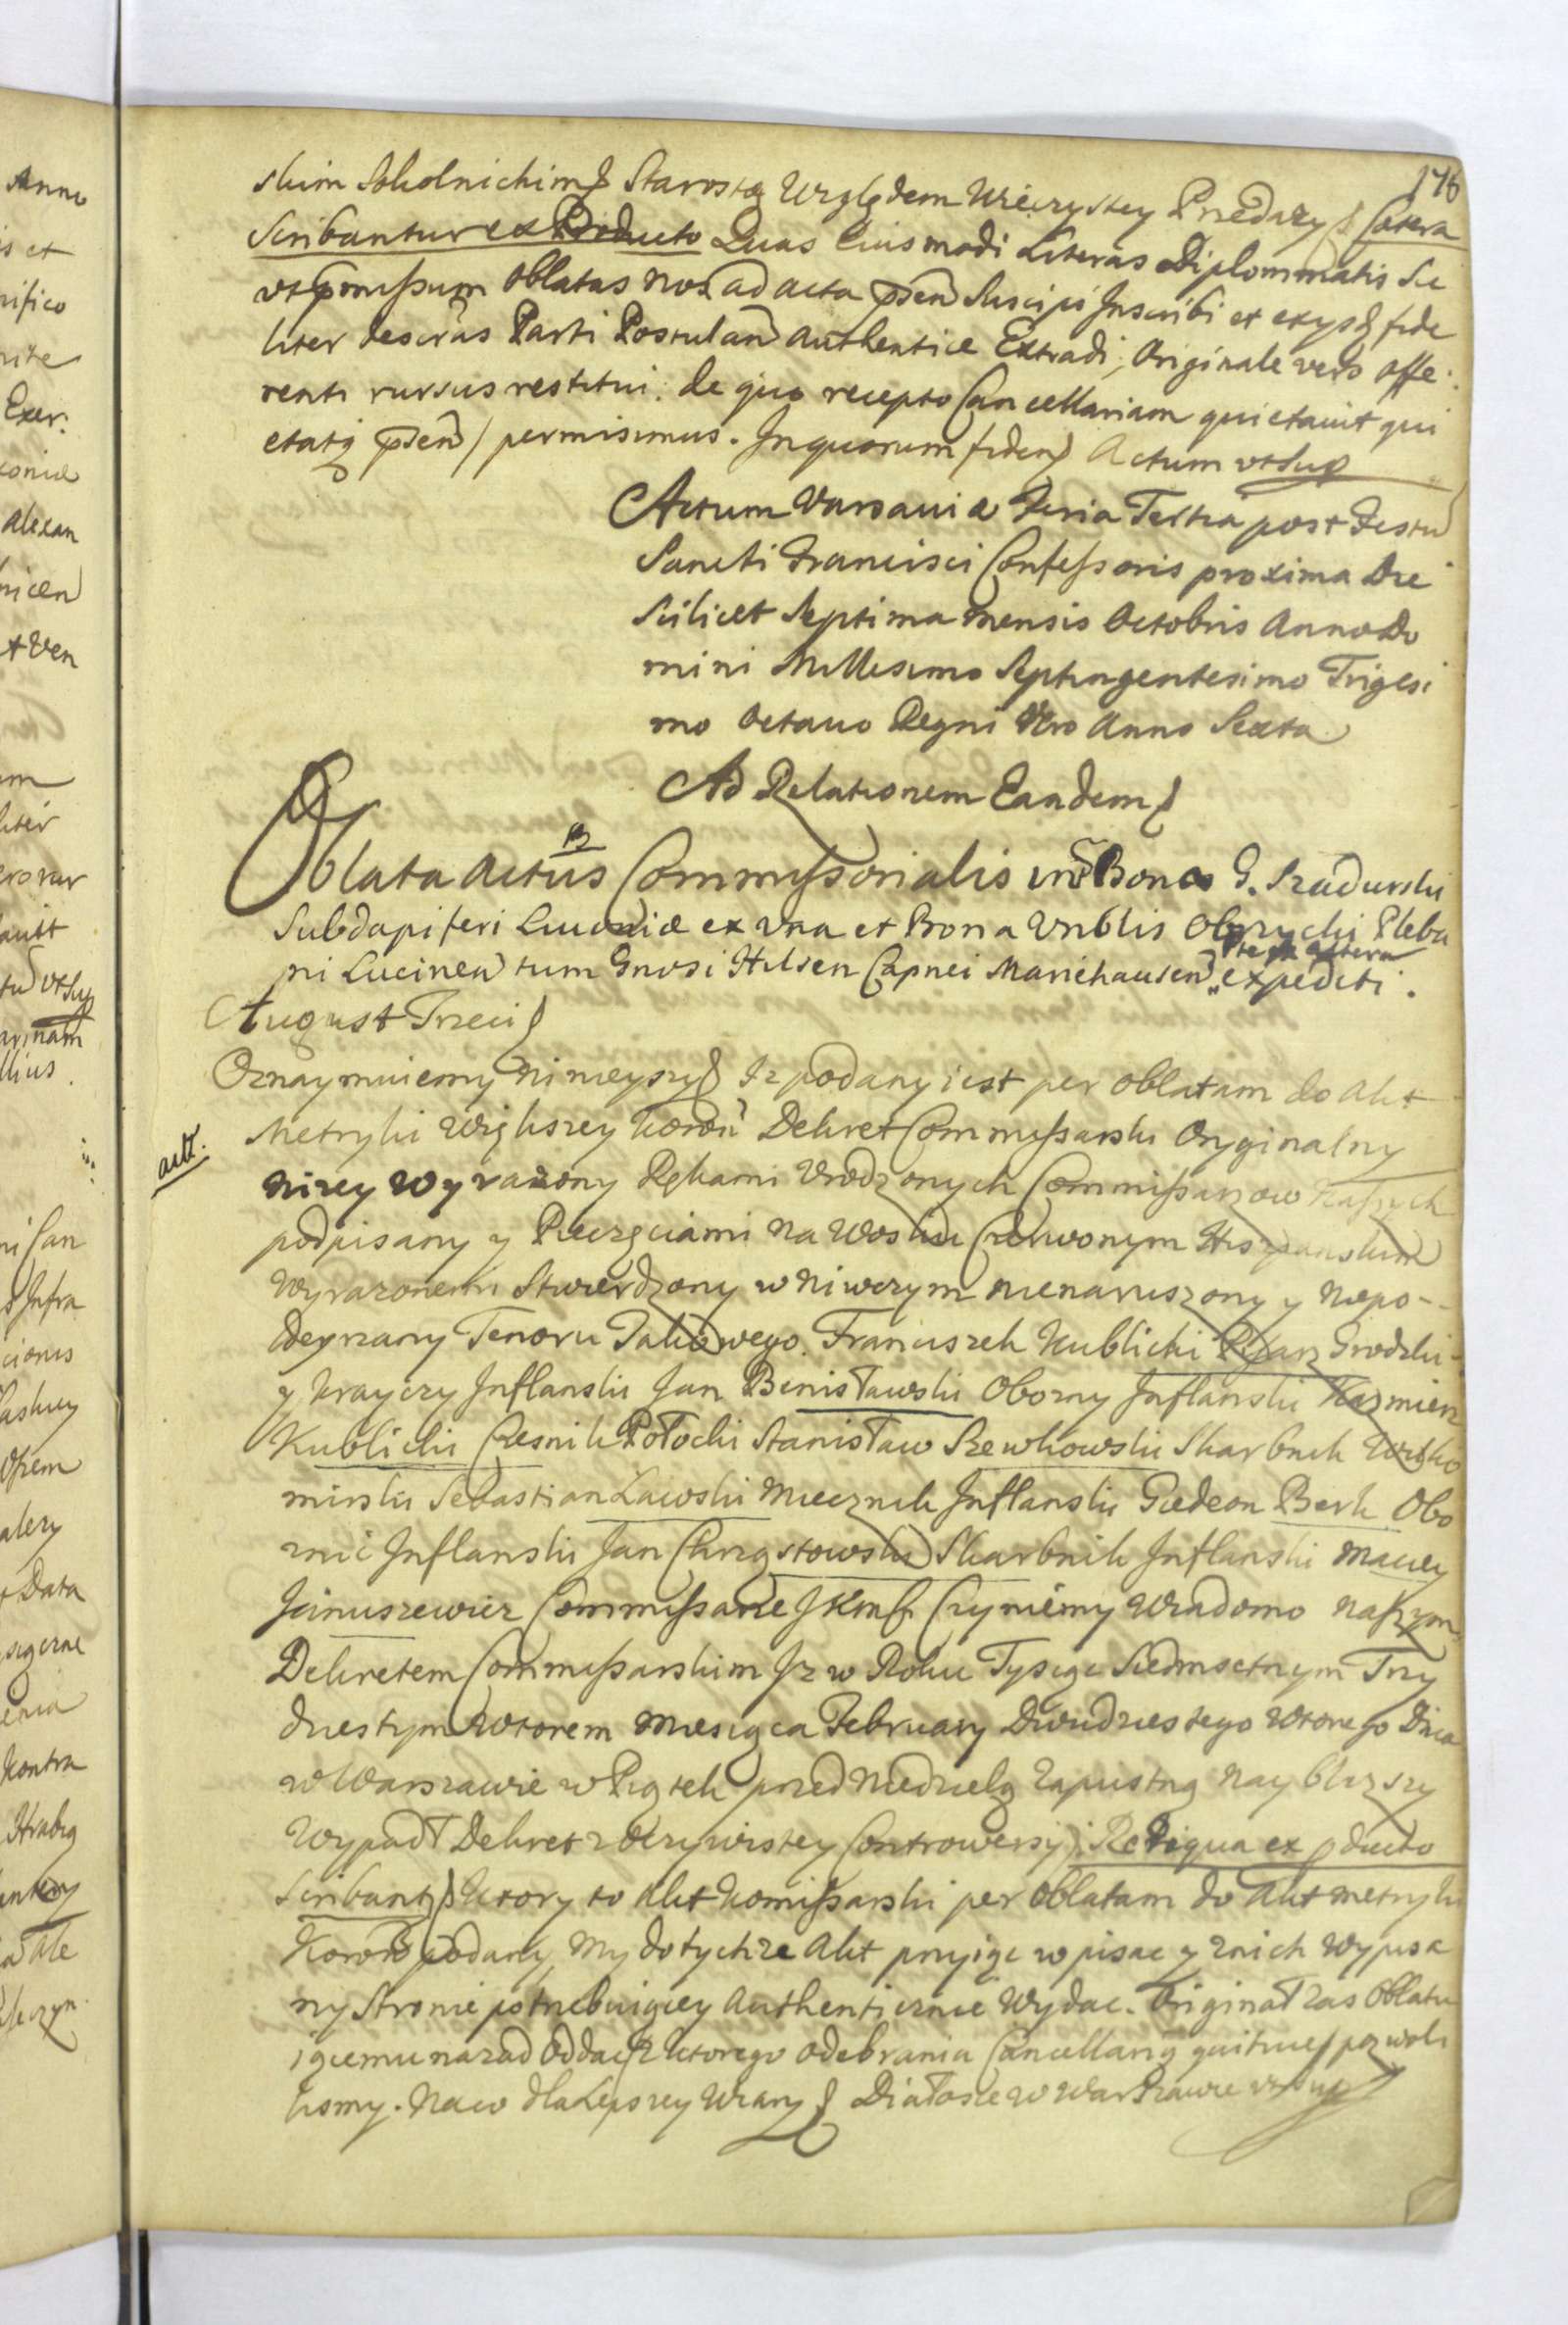 178
skim Sokolnickim Starostą Względem Wieczystey Przedaży Cætera
Scribantur ex Producto Quas Eius modi Literas Diplommatis Su
ut præmissum oblatas nos ad acta præsen Suscipi Inscribi et exys fide
liter descrās Parti Postulan authentice Extradi, Originale vero offe
renti rursus restitui de quo recepto Cancellariam quietavit qui
etatq præsen permisimus. In quorum fidem Actum ut Sup
Actum Varsaviæ Feria Tertia post Festū
Sancti Francisci Confessoris proxima Die
Scilicet Septima mensis Octobris Anno Do
mini Millesimo Septingentesimo Trigesi
mo Octavo Regni Vero Anno Sexto
Ad Relationem Eandem
Oblata Actus Commissorialis Bona G. Szadurski
Subdapiferi Livoniæ ex una et Bona Vnblis Obrycki Pleba
pte ex altera
ni Lucinen tum Gnosi Hilsen Capnei Mariehausen expediti.
August Trzeci
Oznaymuiemy ninieyszy Iz podany iest per oblatam do Akt
Metryki Większey Koron Dekret Commissarski Oryginalny
act.
Nizey Wyrażony Rękami Vrodzonych Commissarzow Naszych
podpisany y Pieczęciami na Wosku Czerwonym Hiszpanskim
wyrazonemi Stwierdzony w Niwczym nienaruszony y niepo-
deyrzany Tenoru Takowego. Franciszek Kublicki Pisarz Grodzki
y Krayczy Inflanski Jan Benisławski Obozny Inflanski Kazmierz
Kublicki Czesnik Połocki Stanisław Szewkowski Skarbnik Wiłko
mirski Sebastian Ławski Miecznik Inflanski Gedeon Berk Obo
znic Inflanski Jan Chrząstowski Skarbnik Inflanski Maciey
Januszewicz Commissarze JKmsci Czyniemy Wiadomo naszym
Dekretem Commissarskim Iz w Roku Tysiąc Siedmsetnym Trzy
dziestym Wtorem Miesiąca February Dwudziestego Wtorego Dnia
w Warszawie w Piątek przed Niedzielą Zapustną Nayblizszy
Wypadł Dekret z Oczywistey Controwersyi Reliqua ex pducto
Scribant Ktory to Akt Komissarski per Oblatam do Akt Metryki
Koron podany My do tychze Akt przyiąc wpisac y z nich wypisa
ny Stronie potrzebuiącey Authentycznie Wydac. Originał zas Oblatu
iącemu nazad oddac z ktorego odebrania Cancellarią quituie pozwoli
lismy. Na co dla Lepszey Wiary Działo sie w Warszawie ut sup